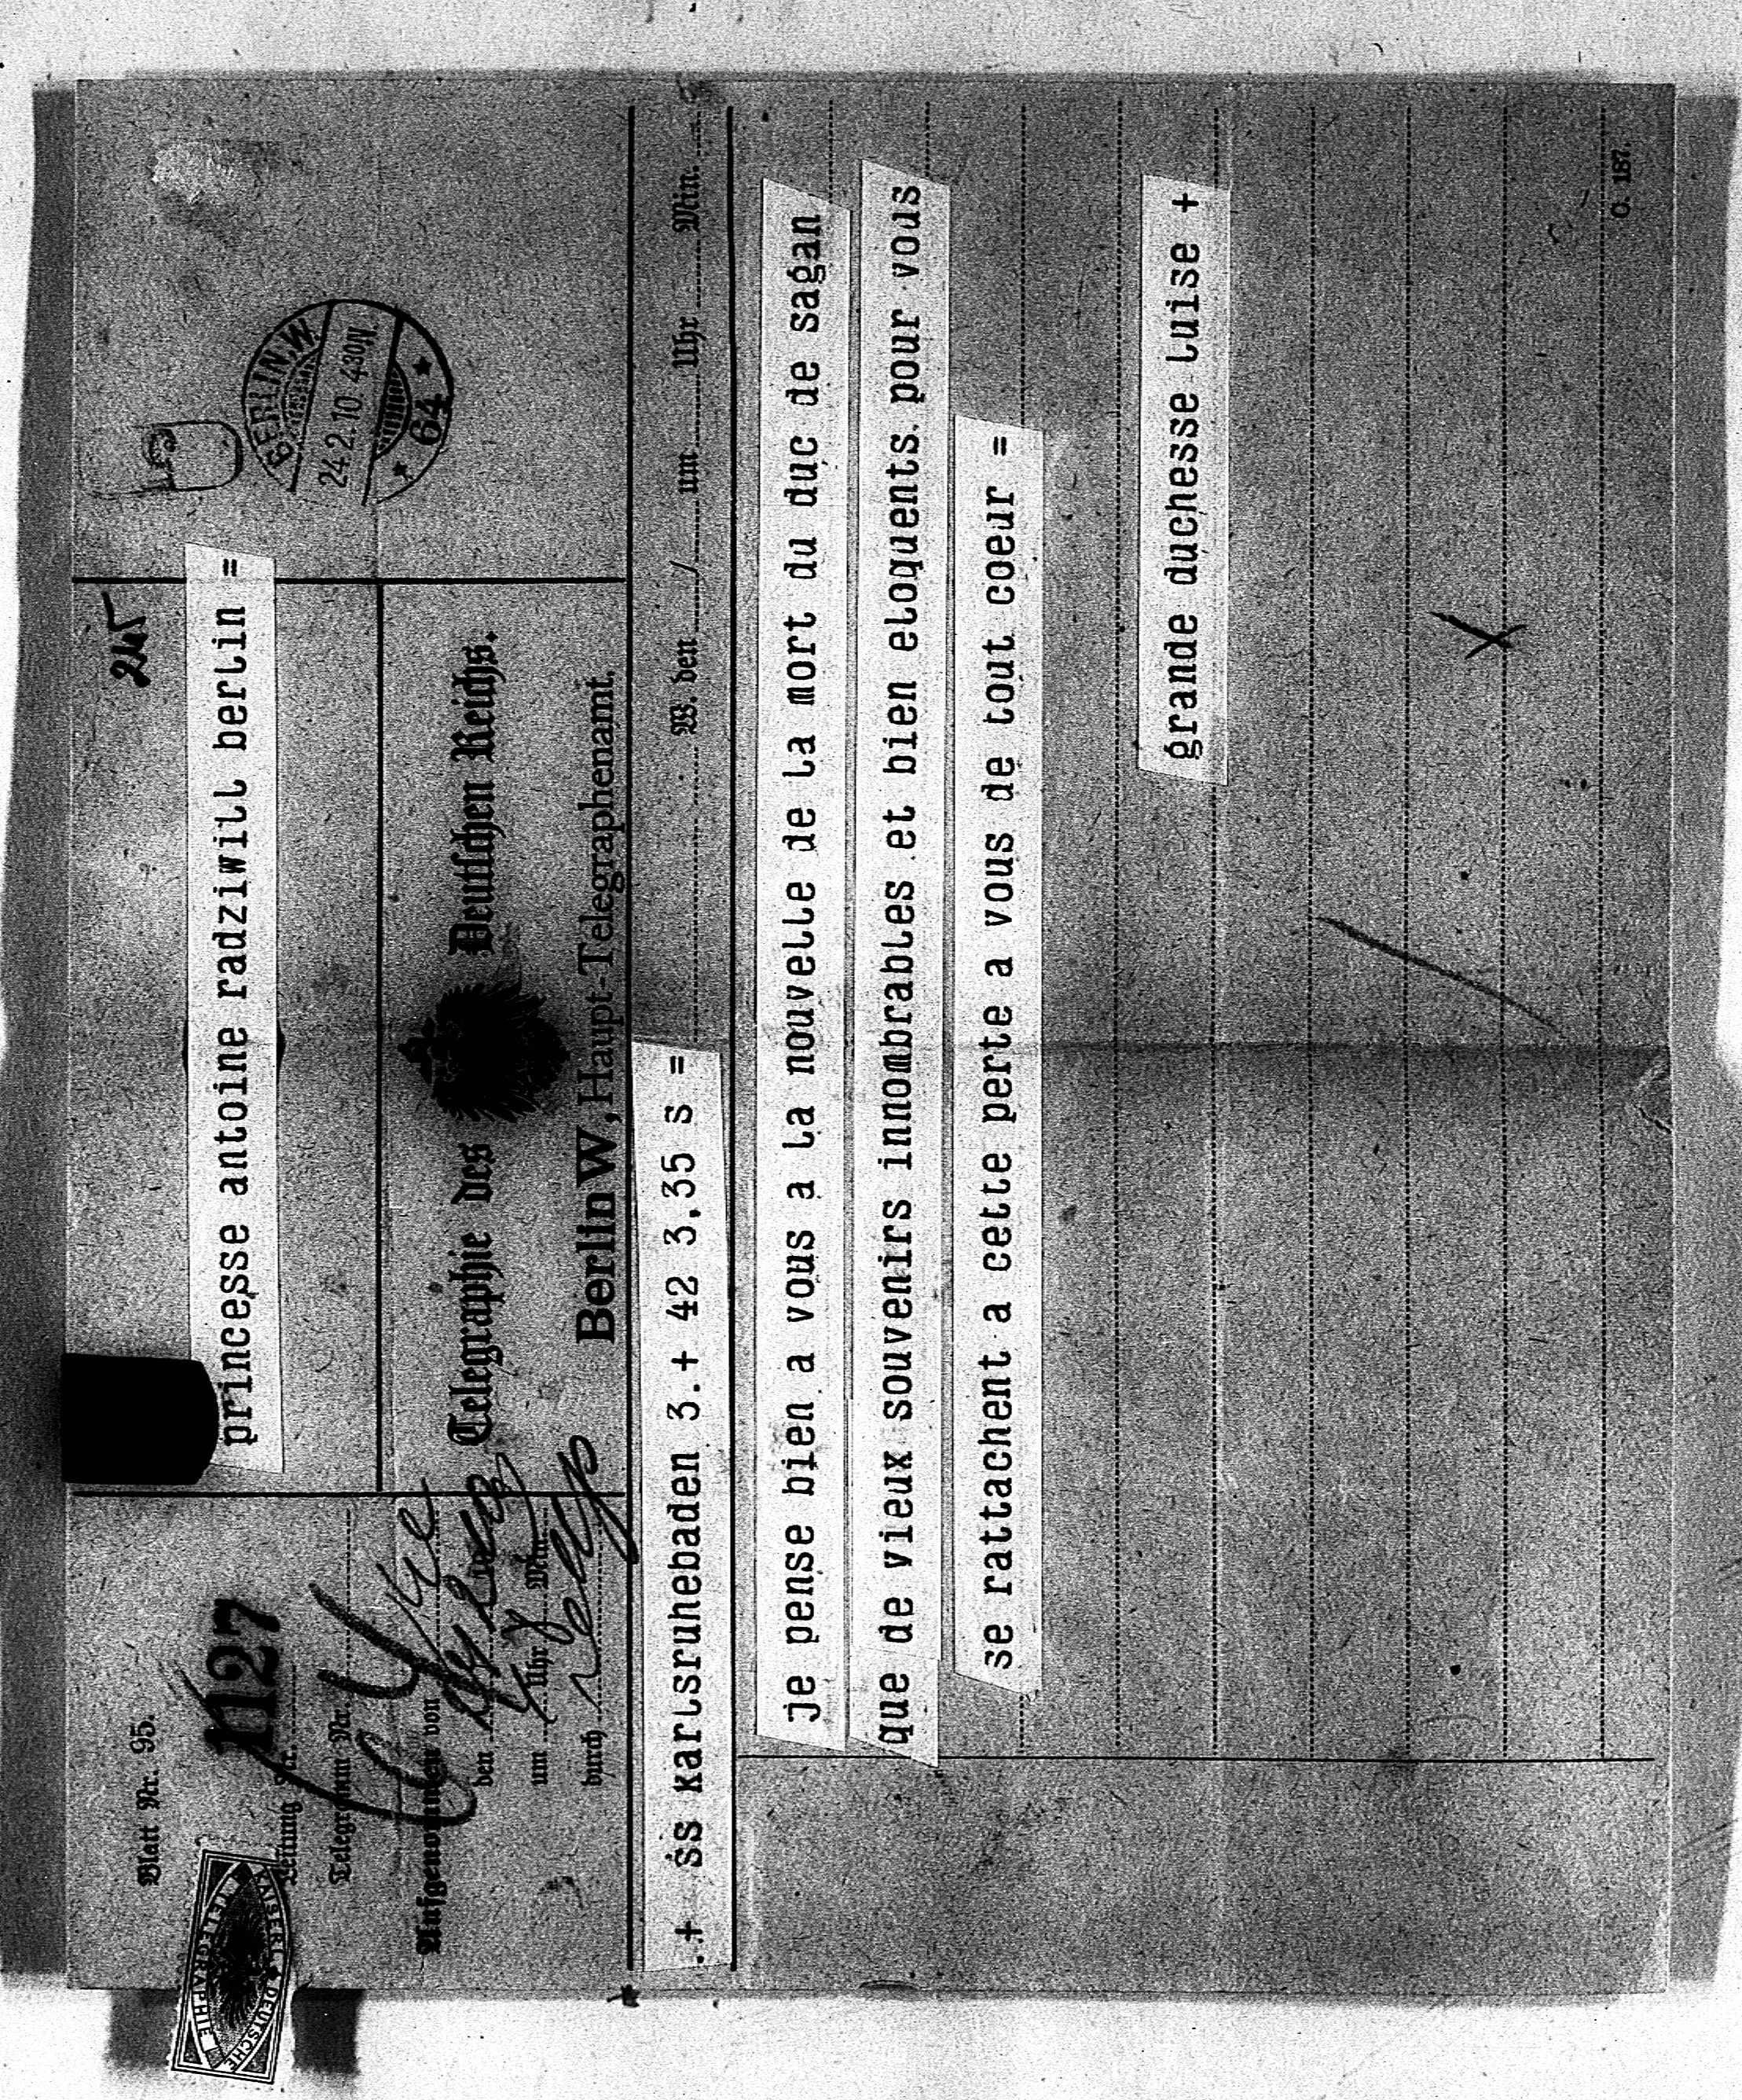 Blatt Nr. 95.
1127
Leitung Nr.
Telegramm Nr.
Aufgenommen von
den
um Uhr Min.
durch
KAISERL. DEUTSCHE
TELEGRAPHIE
princesse antoine radziwill berlin =
Telegraphie des Deutschen Reichs.
Berlin W, Haupt-Telegraphenamt.
BERLIN, W.
24.2.10.4 30N.
64
.+ ss karlsruhebaden 3.+ 42 3,35 s =
W. den / um Uhr Min.
je pense bien a vous a la nouvelle de la mort du duc de sagan
que de vieux souvenirs innombrables et bien eloquents pour vous
se rattachent a cette perte a vous de tout coeur =
grande duchesse luise +
C. 187.